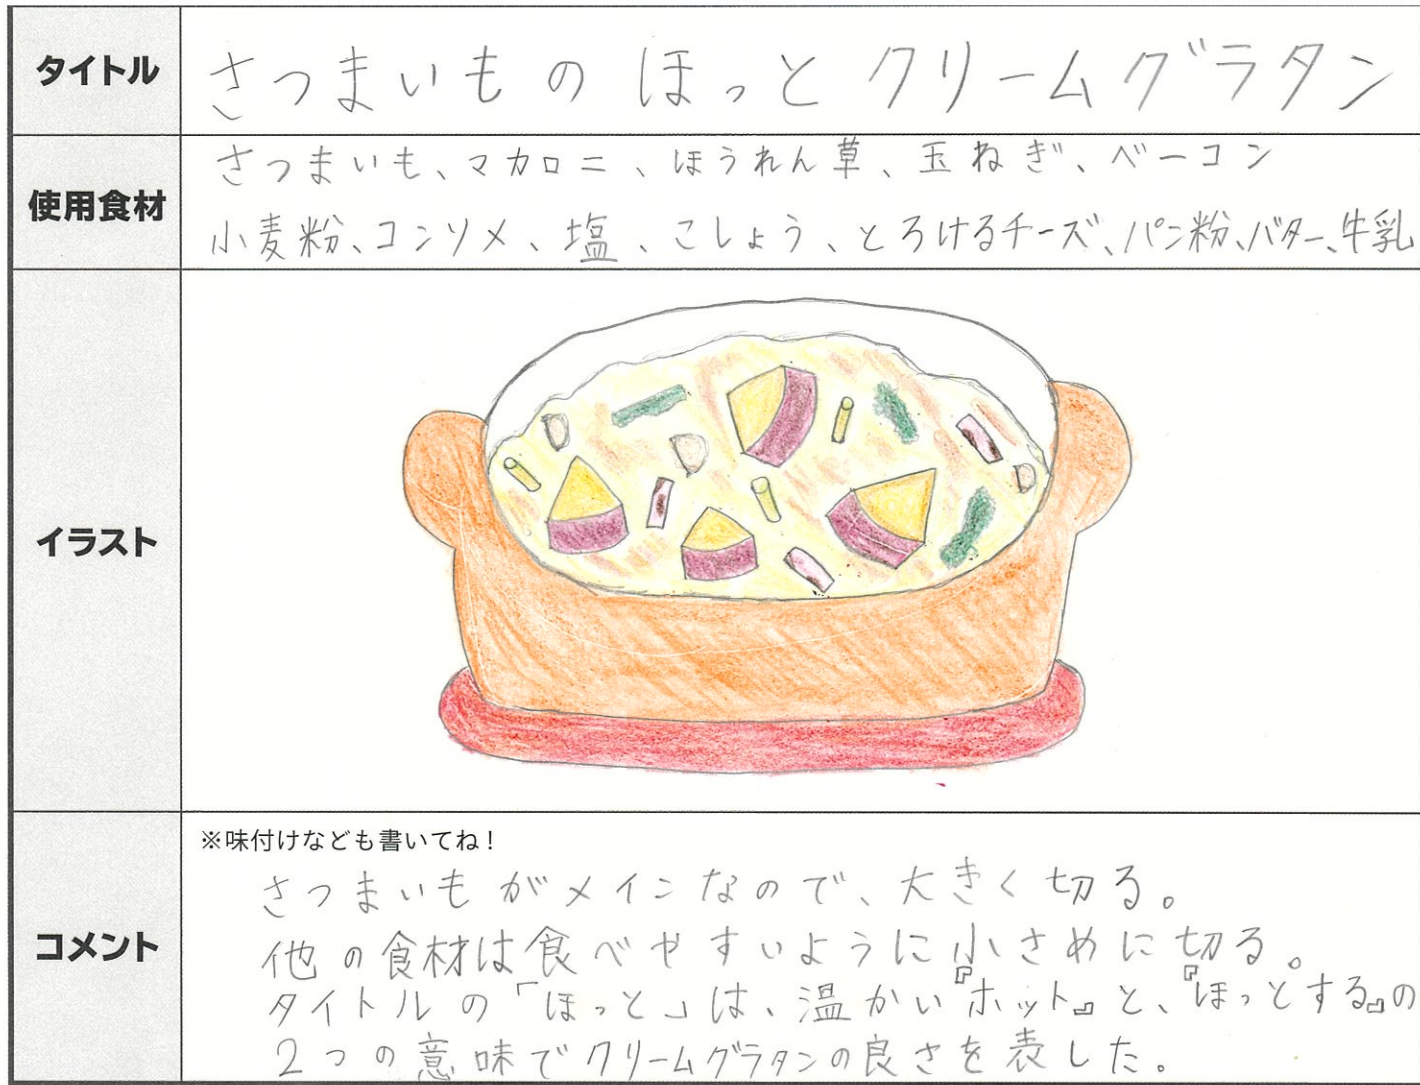 タイトル
さつまいものほっとクリームグラタン
使用食材
さつまいも、マカロニ、ほうれん草、玉ねぎ、ベーコン
小麦粉、コンソメ、塩、こしょう、とろけるチーズ、パン粉、バター、牛乳
イラスト
コメント
※味付けなども書いてね！
さつまいもがメインなので、大きく切る。
他の食材は食べやすいように小さめに切る。
タイトルの「ほっと」は、温かい『ホット』と、『ほっとする』の
2つの意味でクリームグラタンの良さを表した。